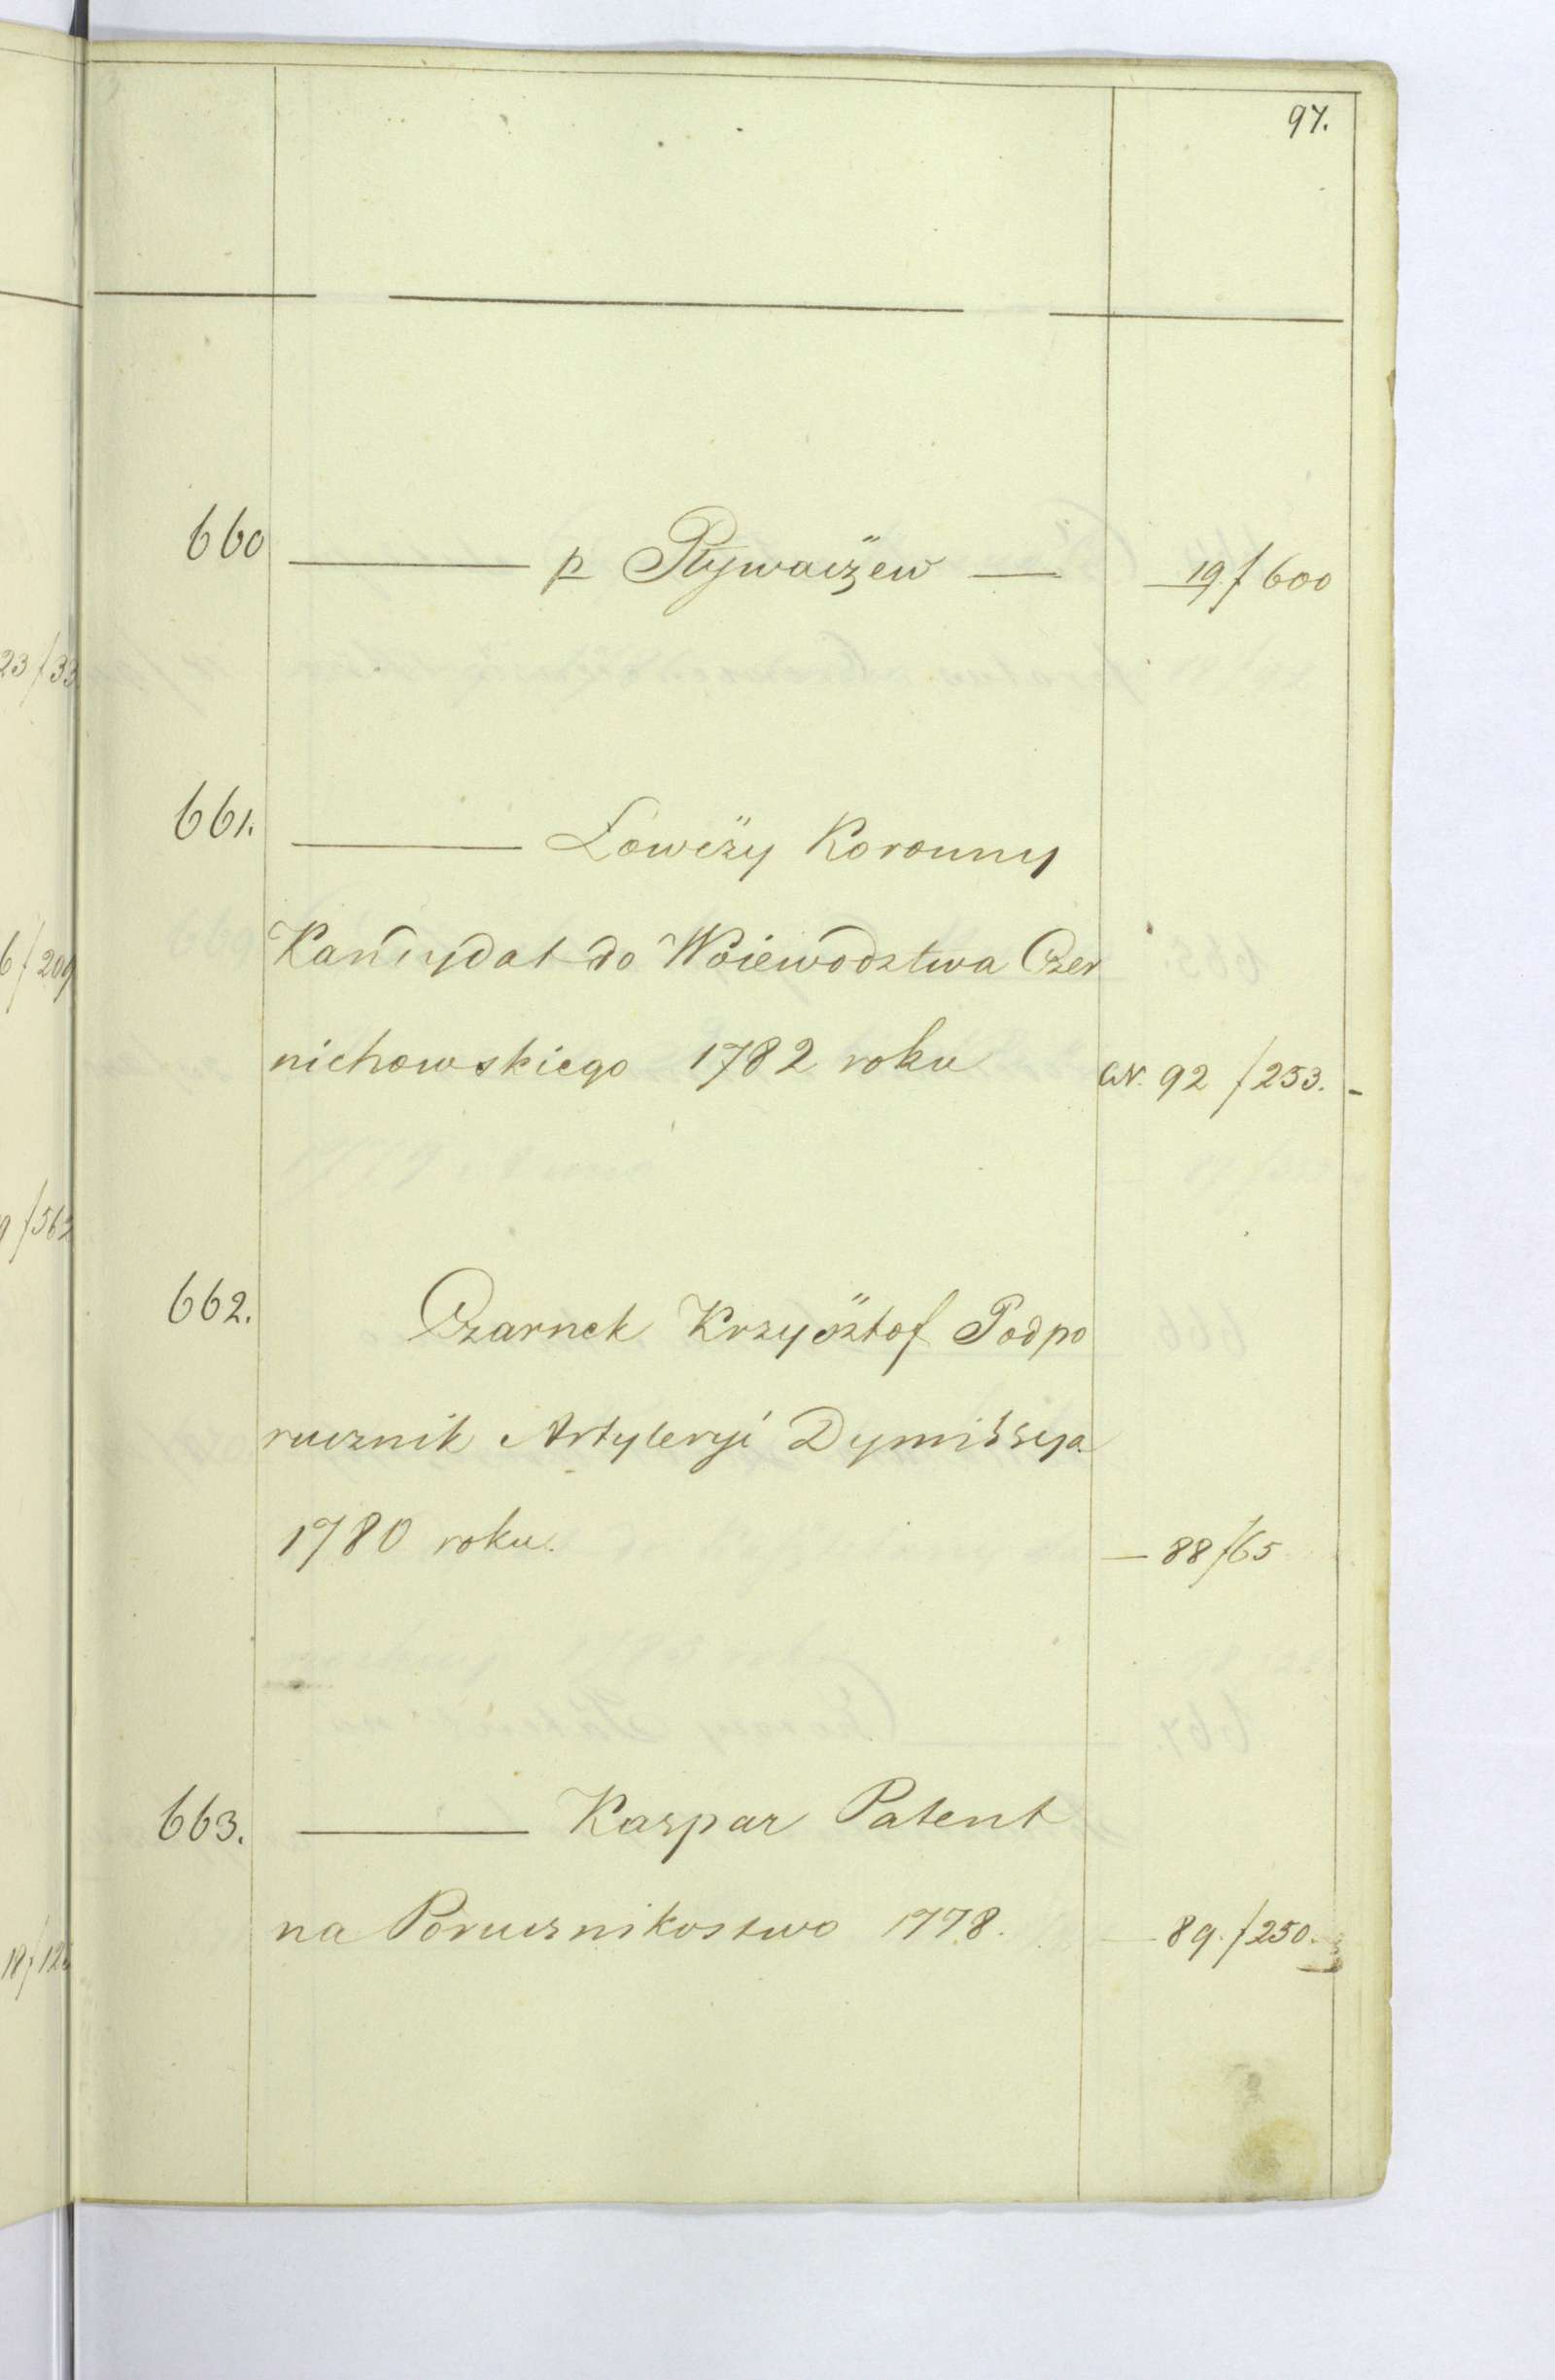 97.
660 ——— p Pływaczew — — 19. / 600
661. ——— Łowczy Koronny
Kandydat do Woiewodztwa Czer
nichowskiego 1782 roku W. 92 / 253. -
662. Czarnek Krzysztof Podpo
rucznik Artyleryi Dymissya
1780 roku. — 88 / 65
663. ——— Kaspar Patent
na Porucznikostwo 1778. — 89. / 250.